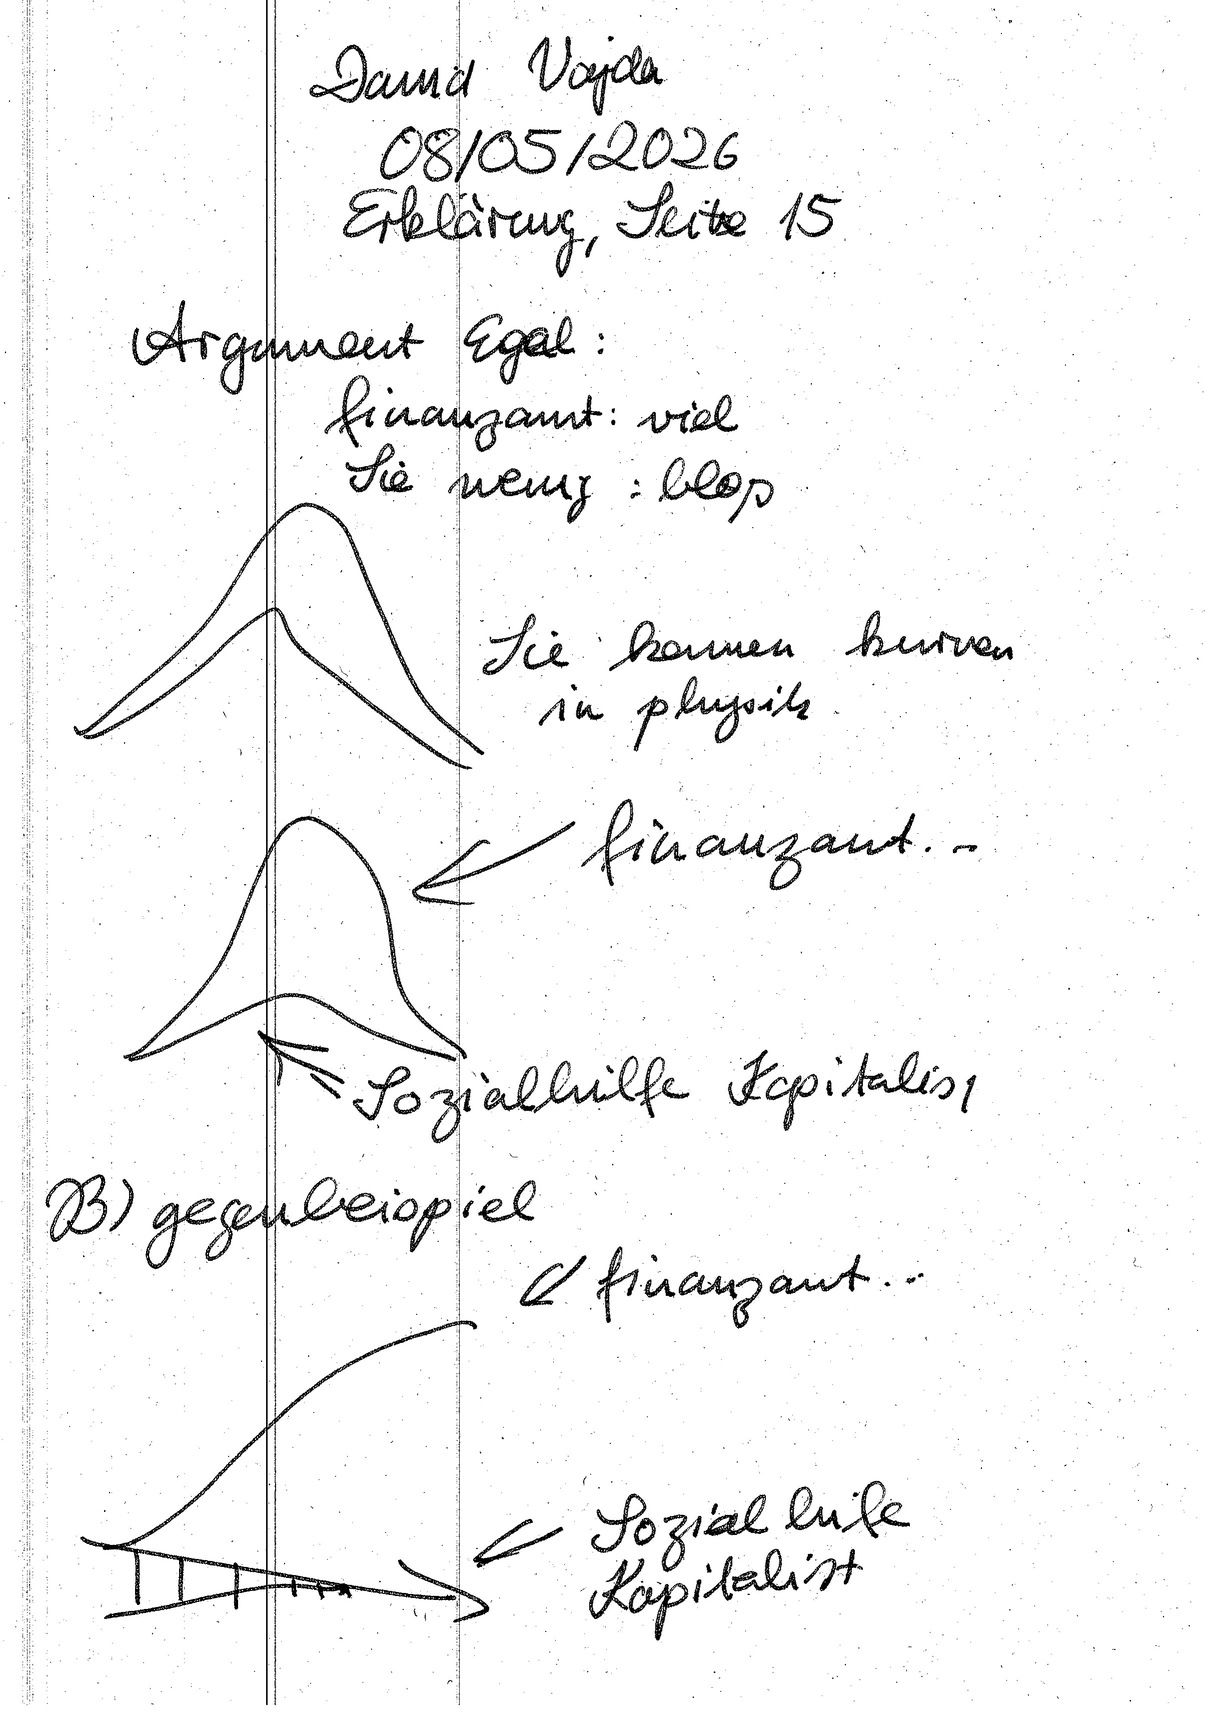 David Vajda
08/05/2026
Erklärung, Seite 15
Argument Egal:
finanzamt: viel
Sie wenig: blop
Sie kennen kurven
in physik
finanzamt..
Sozialhilfe Kapitalist
B) gegenbeispiel
finanzamt...
Sozialhilfe
Kapitalist